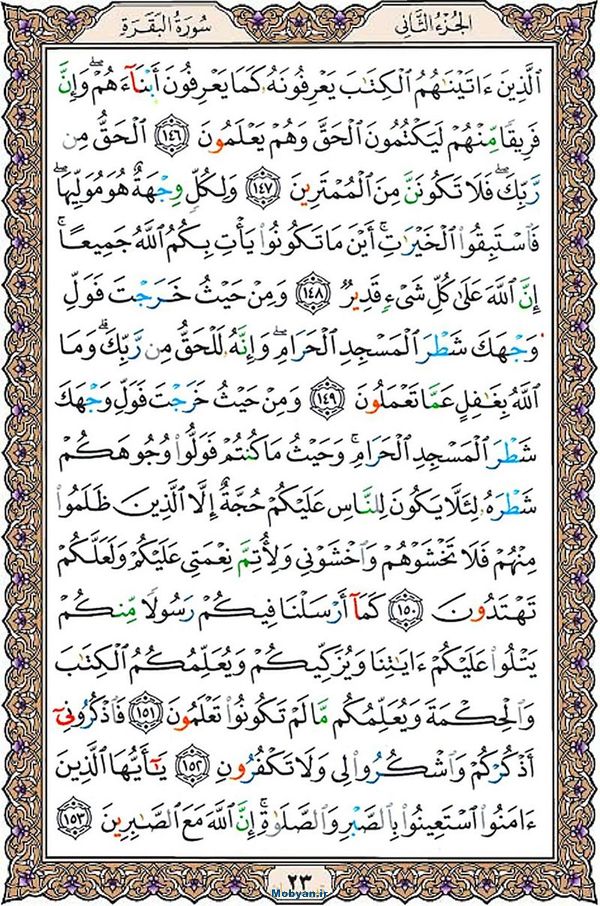 الجُزءُ الثَّانِی سُورَةُ البَقَرَةِ
الَّذِينَ ءَاتَيْنَاهُمُ الْكِتَابَ يَعْرِفُونَهُ كَمَا يَعْرِفُونَ أَبْنَآءَهُمْ ۖ وَإِنَّ
فَرِيقًا مِّنْهُمْ لَيَكْتُمُونَ الْحَقَّ وَهُمْ يَعْلَمُونَ ١٤٦ الْحَقُّ مِن
رَّبِّكَ ۖ فَلَا تَكُونَنَّ مِنَ الْمُمْتَرِينَ ١٤٧ وَلِكُلٍّ وِجْهَةٌ هُوَ مُوَلِّيهَا ۖ
فَاسْتَبِقُوا الْخَيْرَاتِ ۚ أَيْنَ مَا تَكُونُوا يَأْتِ بِكُمُ اللَّهُ جَمِيعًا ۚ
إِنَّ اللَّهَ عَلَىٰ كُلِّ شَیْءٍ قَدِيرٌ ١٤٨ وَمِنْ حَيْثُ خَرَجْتَ فَوَلِّ
وَجْهَكَ شَطْرَ الْمَسْجِدِ الْحَرَامِ ۖ وَإِنَّهُ لَلْحَقُّ مِن رَّبِّكَ ۗ وَمَا
اللَّهُ بِغَافِلٍ عَمَّا تَعْمَلُونَ ١٤٩ وَمِنْ حَيْثُ خَرَجْتَ فَوَلِّ وَجْهَكَ
شَطْرَ الْمَسْجِدِ الْحَرَامِ ۚ وَحَيْثُ مَا كُنتُمْ فَوَلُّوا وُجُوهَكُمْ
شَطْرَهُ لِئَلَّا يَكُونَ لِلنَّاسِ عَلَيْكُمْ حُجَّةٌ إِلَّا الَّذِينَ ظَلَمُوا
مِنْهُمْ فَلَا تَخْشَوْهُمْ وَاخْشَوْنِی وَلِأُتِمَّ نِعْمَتِی عَلَيْكُمْ وَلَعَلَّكُمْ
تَهْتَدُونَ ١٥٠ كَمَآ أَرْسَلْنَا فِيكُمْ رَسُولًا مِّنكُمْ
يَتْلُوا عَلَيْكُمْ ءَايَاتِنَا وَيُزَكِّيكُمْ وَيُعَلِّمُكُمُ الْكِتَابَ
وَالْحِكْمَةَ وَيُعَلِّمُكُم مَّا لَمْ تَكُونُوا تَعْلَمُونَ ١٥١ فَاذْكُرُونِیٓ
أَذْكُرْكُمْ وَاشْكُرُوا لِی وَلَا تَكْفُرُونِ ١٥٢ يَآأَيُّهَا الَّذِينَ
ءَامَنُوا اسْتَعِينُوا بِالصَّبْرِ وَالصَّلَوٰةِ ۚ إِنَّ اللَّهَ مَعَ الصَّابِرِينَ ١٥٣
٢٣
Mobyan.ir